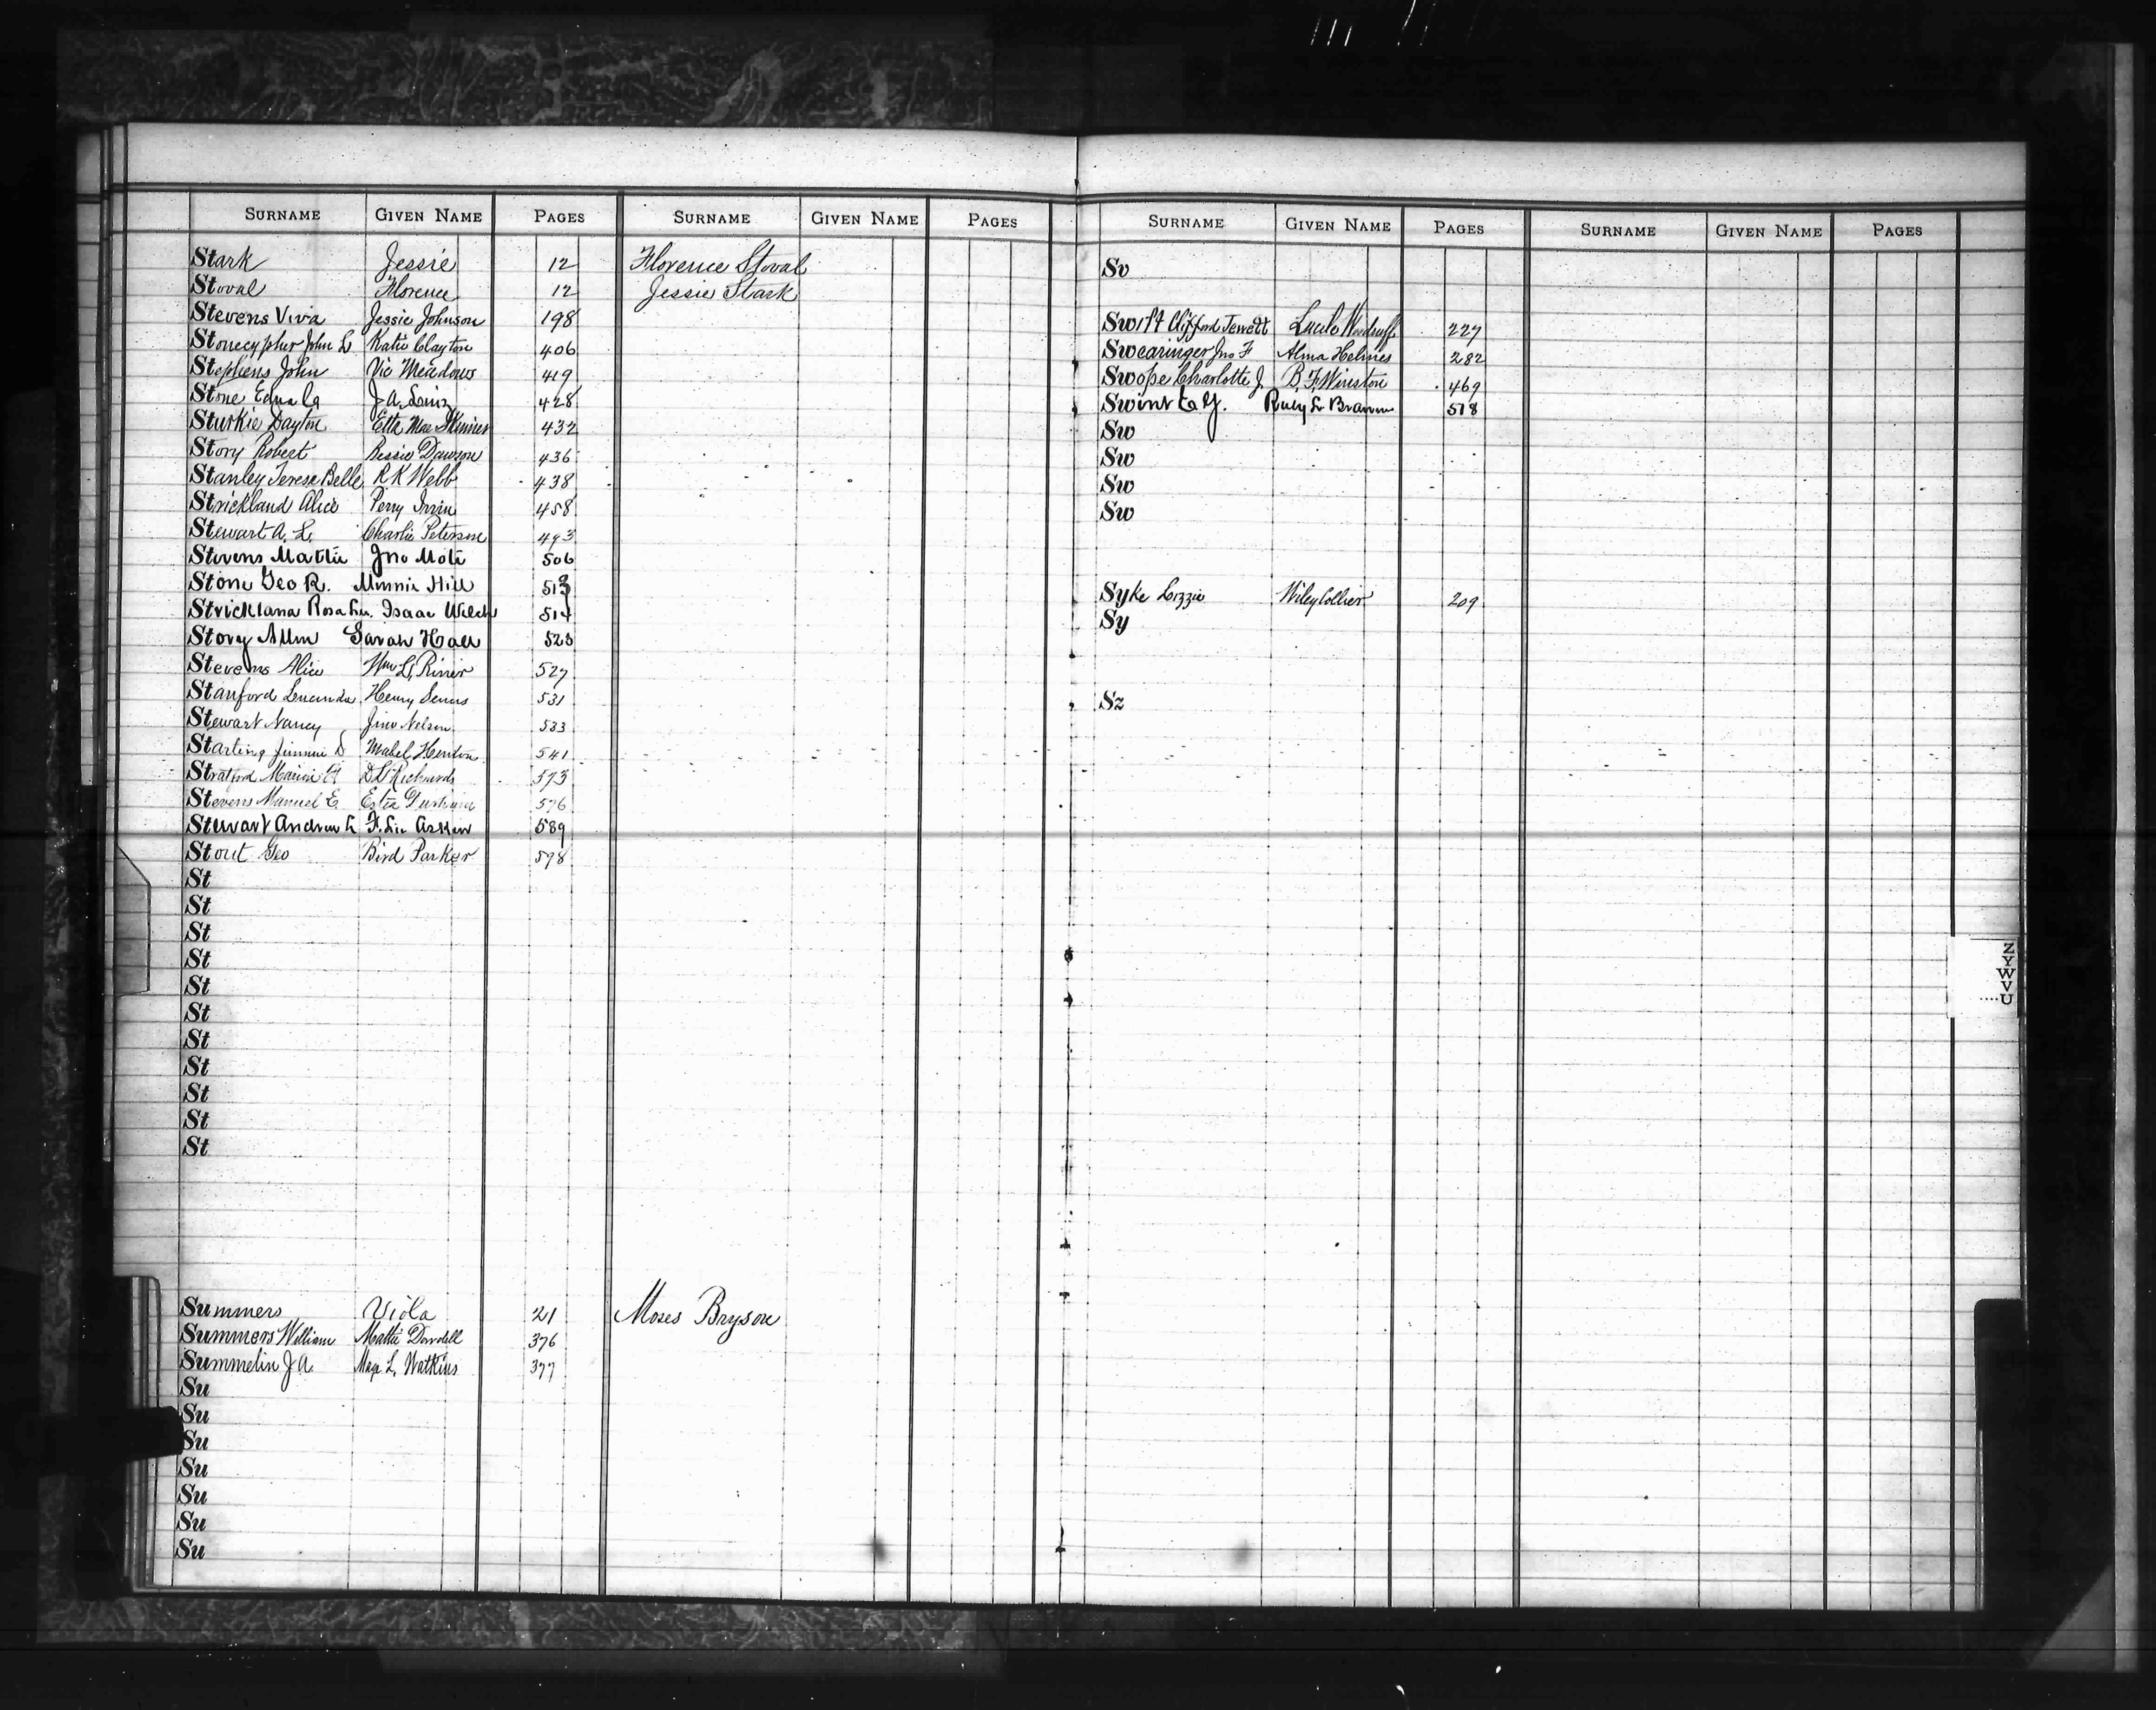 SURNAME GIVEN NAME PAGES SURNAME GIVEN NAME PAGES
Stark Jessie 12 Florence Stoval
Stoval Florence 12 Jessie Stark
Stevens Viva Jessie Johnson 198
Stonecypher John L Katie Clayton 406
Stephens John Vic Meadows 419
Stone Edna J.A. 428
Sturkie Dayton Etta Mae Skinner 432
Story Robert Bessie Dawson 436
Stanley Teresa Belle R K Webb 438
Strickland Alice Perry Irvin 458
Stewart A. L. Charlie Peterson 493
Stevens Mattie Jno Mote 506
Stone Geo R. Minnie Hill 513
Strickland Rosa Isaac Welch 514
Story Allen Sarah Hall 523
Stevens Alice Wm L. Riner 527
Stanford Lucinda Henry 531
Stewart Nancy Jim Nelson 533
Starling Jimmie D Mabel Henton 541
Stratford Marion D L Richards 573
Stevens Manuel E. Estee Durham 576
Stewart Andrew F. Lee Askew 589
Stout Geo Bird Parker 598
St
St
St
St
St
St
St
St
St
St
St
Summers Viola 21 Moses Bryson
Summers William Mattie Dowdell 376
Summelin J A Mage L. Watkins 377
Su
Su
Su
Su
Su
Su
Su
SURNAME GIVEN NAME PAGES SURNAME GIVEN NAME PAGES
Sv
Swift Clifford Jewett Lucile Woodruff 227
Swearinger Jno F Alma Helmes 282
Swope Charlotte J. B. F. Winston 469
Swint Ruby L 518
Sw
Sw
Sw
Sw
Syke Lizzie Wiley Collier 209
Sy
Sz
Z
Y
W
V
U